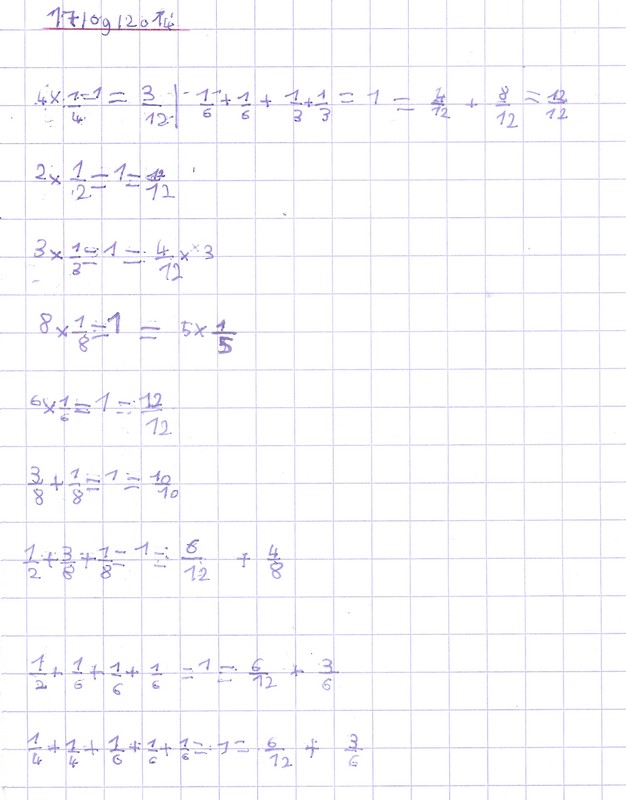 17/09/2014
4 × 1/4 = 1 = 3/12 | 1/6 + 1/6 + 1/3 + 1/3 = 1 = 4/12 + 8/12 = 12/12
2 × 1/2 = 1 = 12/12
3 × 1/3 = 1 = 4/12 × 3
8 × 1/8 = 1 = 5 × 1/5
6 × 1/6 = 1 = 12/12
3/8 + 1/8 = 1 = 10/10
1/2 + 3/8 + 1/8 = 1 = 6/12 + 4/8
1/2 + 1/6 + 1/6 + 1/6 = 1 = 6/12 + 3/6
1/4 + 1/4 + 1/6 + 1/6 + 1/6 = 1 = 6/12 + 3/6